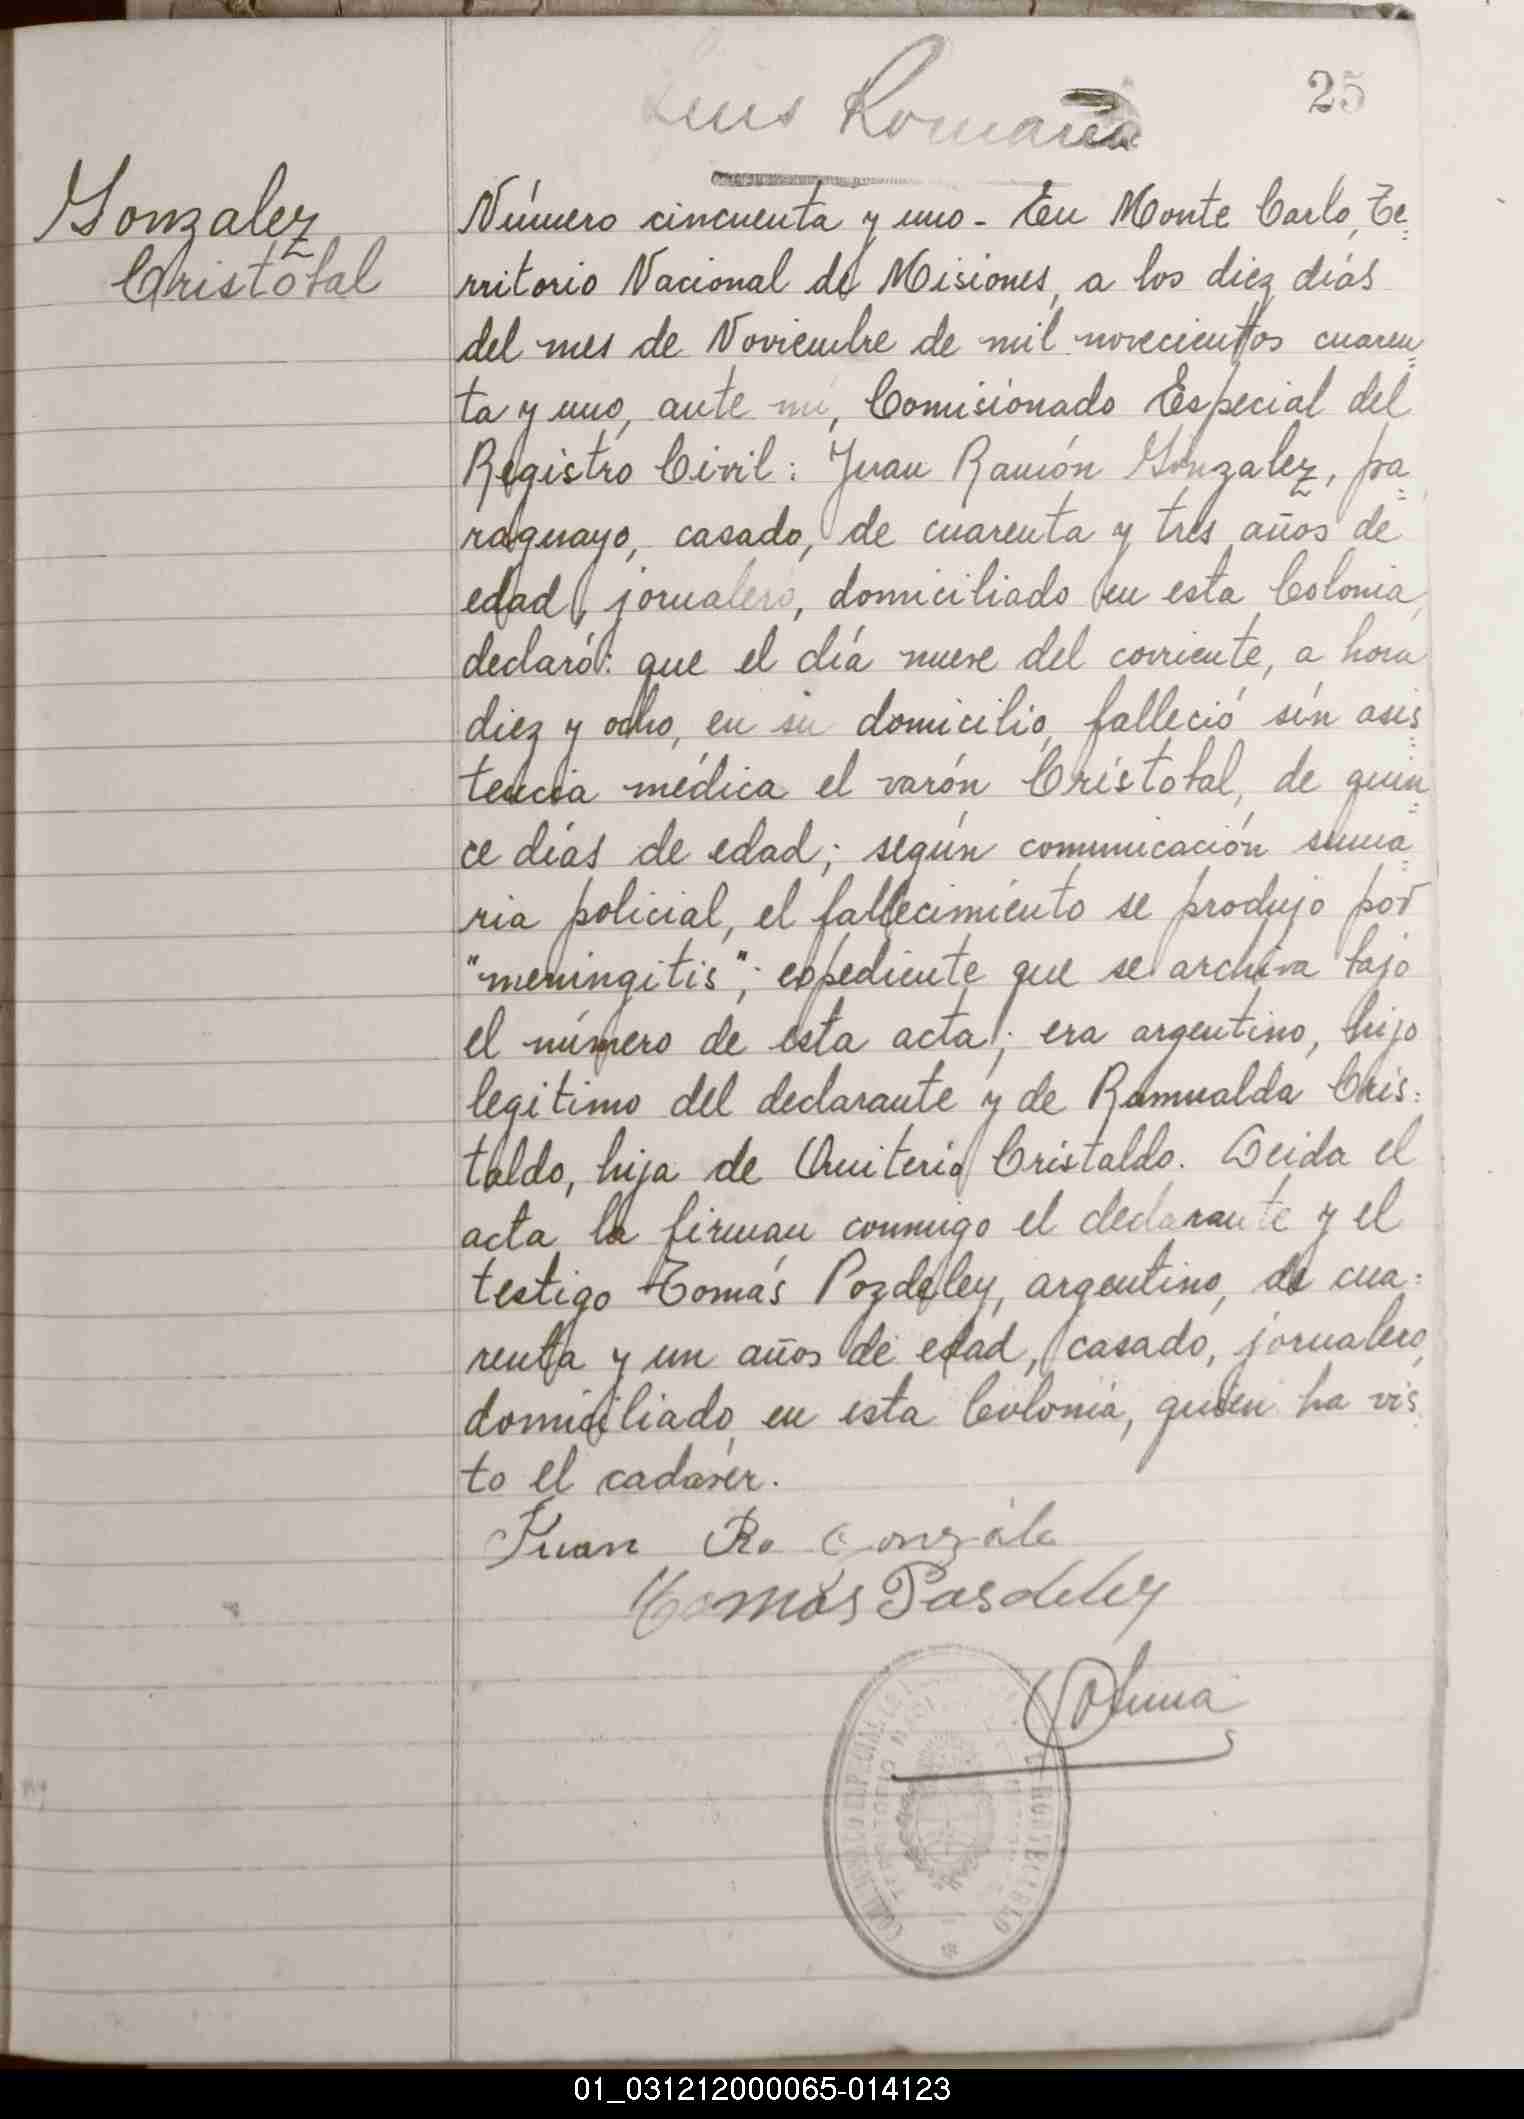 25
Luis Romana
Gonzalez
Cristobal
Número cincuenta y uno - En Monte Carlo, Te=
rritorio Nacional de Misiones, a los diez días
del mes de Noviembre de mil novecientos cuaren=
ta y uno, ante mi, Comisionado Especial del
Registro Civil: Juan Ramón Gonzalez, pa=
raguayo, casado, de cuarenta y tres años de
edad, jornalero, domiciliado en esta Colonia,
declaró: que el día nueve del corriente, a hora
diez y ocho, en su domicilio, falleció sín asis=
tencia médica el varón Cristobal, de quin=
ce días de edad; según comunicación suma=
ria policial, el fallecimiento se produjo por
"meningitis"; expediente que se archiva bajo
el número de esta acta; era argentino, hijo
legitimo del declarante y de Romualda Cris=
taldo, hija de Quiteria Cristaldo. Leida el
acta la firman conmigo el declarante y el
testigo Tomás Pozdeley, argentino, de cua=
renta y un años de edad, casado, jornalero,
domiciliado en esta Colonia, quien ha vis
to el cadaver.
Juan Ro Gonzále
Tomas Pasdeley
01_031212000065-014123